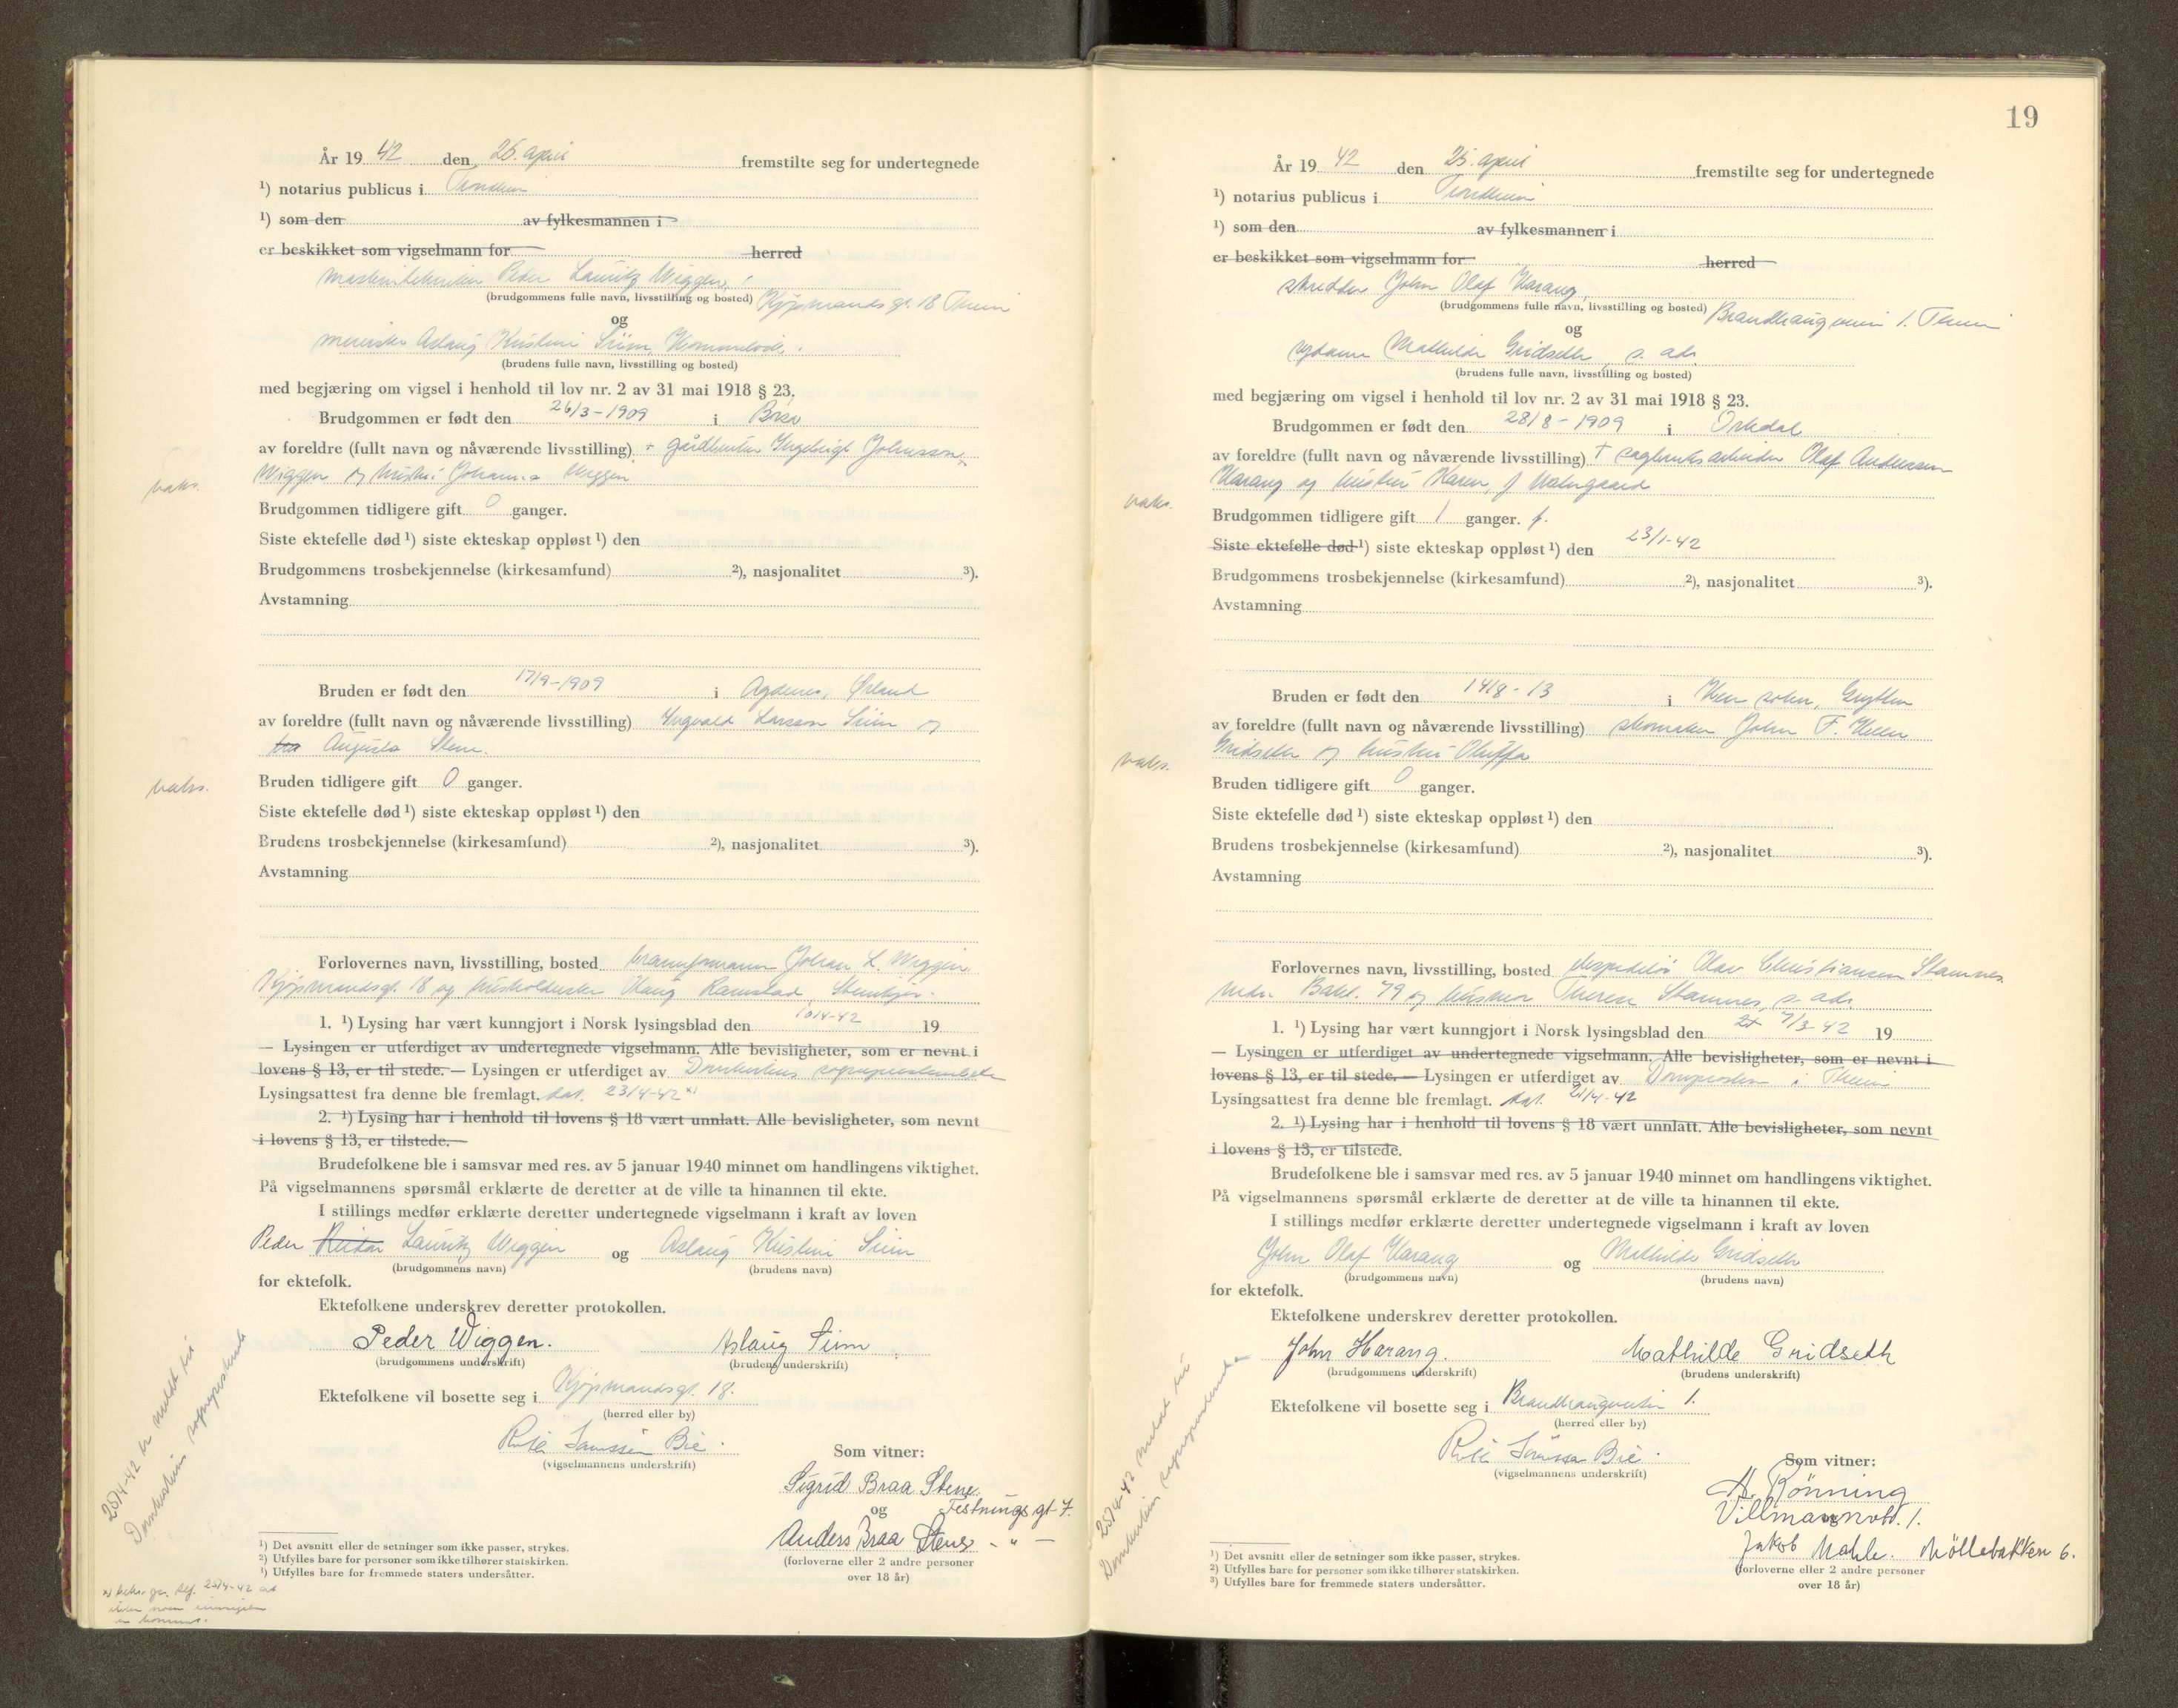 År 19 42 den 25. april fremstilte seg for undertegnede
¹) notarius publicus i Trondheim
¹) som den av fylkesmannen i
er beskikket som vigselmann for herred
maskintekniker Peder Lauritz Wiggen,
(brudgommens fulle navn, livsstilling og bosted) Kjøpmandsgt. 18 Theim
og
Aslaug Kristine Siim,
(brudens fulle navn, livsstilling og bosted)
med begjæring om vigsel i henhold til lov nr. 2 av 31 mai 1918 § 23.
Brudgommen er født den 26/3-1909 i
av foreldre (fullt navn og nåværende livsstilling) + gårdbruker Ingebrigt Johnsson
Wiggen og hustru Johanna Wiggen
vaks.
Brudgommen tidligere gift 0 ganger.
Siste ektefelle død ¹) siste ekteskap oppløst ¹) den
Brudgommens trosbekjennelse (kirkesamfund) ²), nasjonalitet ³).
Avstamning
Bruden er født den 17/9-1909 i Agdenes, Ørland
av foreldre (fullt navn og nåværende livsstilling) Ingvald Larssen Siim og
fra Augusta Stene.
vaks.
Bruden tidligere gift 0 ganger.
Siste ektefelle død ¹) siste ekteskap oppløst ¹) den
Brudens trosbekjennelse (kirkesamfund) ²), nasjonalitet ³).
Avstamning
Forlovernes navn, livsstilling, bosted brannformann Johan L. Wiggen
Kjøpmandsgt. 18 og husholderske Ramstad, Steinkjer.
1. ¹) Lysing har vært kunngjort i Norsk lysingsblad den 10/4-42 19
— Lysingen er utferdiget av undertegnede vigselmann. Alle bevisligheter, som er nevnt i
lovens § 13, er til stede. — Lysingen er utferdiget av Domkirkens sogneprestembete
Lysingsattest fra denne ble fremlagt. dat. 23/4-42 x)
2. ¹) Lysing har i henhold til lovens § 18 vært unnlatt. Alle bevisligheter, som nevnt
i lovens § 13, er tilstede.—
Brudefolkene ble i samsvar med res. av 5 januar 1940 minnet om handlingens viktighet.
På vigselmannens spørsmål erklærte de deretter at de ville ta hinannen til ekte.
I stillings medfør erklærte deretter undertegnede vigselmann i kraft av loven
Peder Reidar Lauritz Wiggen og Aslaug Kristine Siim
(brudgommens navn) (brudens navn)
for ektefolk.
Ektefolkene underskrev deretter protokollen.
Peder Wiggen. Aslaug Siim
(brudgommens underskrift) (brudens underskrift)
Ektefolkene vil bosette seg i Kjøpmandsgt. 18.
(herred eller by)
(vigselmannens underskrift)
Som vitner:
Sigrid Braa Stene
og Festningsgt 7.
Anders Braa Stene - " -
(forloverne eller 2 andre personer
over 18 år)
25/4-42 er meldt til
Domkirkens sogneprestemb
¹) Det avsnitt eller de setninger som ikke passer, strykes.
²) Utfylles bare for personer som ikke tilhører statskirken.
³) Utfylles bare for fremmede staters undersåtter.
19
År 19 42 den 25. april fremstilte seg for undertegnede
¹) notarius publicus i Trondheim
¹) som den av fylkesmannen i
er beskikket som vigselmann for herred
skredder John Olaf Harang,
(brudgommens fulle navn, livsstilling og bosted) Brandhaugveien 1. Theim
og
sydame Mathilde Gridseth, s. ads.
(brudens fulle navn, livsstilling og bosted)
med begjæring om vigsel i henhold til lov nr. 2 av 31 mai 1918 § 23.
Brudgommen er født den 28/8-1909 i Orkdal
av foreldre (fullt navn og nåværende livsstilling) † sagbruksarbeider Olaf Andersen
Harang og hustru Karen, f
vaks.
Brudgommen tidligere gift 1 ganger. f.
Siste ektefelle død ¹) siste ekteskap oppløst ¹) den 23/1-42
Brudgommens trosbekjennelse (kirkesamfund) ²), nasjonalitet ³).
Avstamning
Bruden er født den 14/8-13 i Hen sokn, Grytten
av foreldre (fullt navn og nåværende livsstilling) skomaker John F.
Gridseth og hustru Oluffa
vaks.
Bruden tidligere gift 0 ganger.
Siste ektefelle død ¹) siste ekteskap oppløst ¹) den
Brudens trosbekjennelse (kirkesamfund) ²), nasjonalitet ³).
Avstamning
Forlovernes navn, livsstilling, bosted ekspeditør Olav Christiansen Stamnes
nedr. Bakl. 79 og hustru Therese Stamnes, s. ads.
1. ¹) Lysing har vært kunngjort i Norsk lysingsblad den 7/3-42 19
— Lysingen er utferdiget av undertegnede vigselmann. Alle bevisligheter, som er nevnt i
lovens § 13, er til stede. — Lysingen er utferdiget av Domprosten i Theim
Lysingsattest fra denne ble fremlagt. dat. 21/4-42
2. ¹) Lysing har i henhold til lovens § 18 vært unnlatt. Alle bevisligheter, som nevnt
i lovens § 13, er tilstede.
Brudefolkene ble i samsvar med res. av 5 januar 1940 minnet om handlingens viktighet.
På vigselmannens spørsmål erklærte de deretter at de ville ta hinannen til ekte.
I stillings medfør erklærte deretter undertegnede vigselmann i kraft av loven
John Olaf Harang og Mathilde Gridseth
(brudgommens navn) (brudens navn)
for ektefolk.
Ektefolkene underskrev deretter protokollen.
John Harang. Mathilde Gridseth
(brudgommens underskrift) (brudens underskrift)
Ektefolkene vil bosette seg i Brandhaugveien 1.
(herred eller by)
(vigselmannens underskrift)
Som vitner:
A. Rönning
og
Villmannvold. 1.
Jakob Mahle. Möllebakken 6.
(forloverne eller 2 andre personer
over 18 år)
25/4-42 meldt til
Domkirkens sogneprestembe
¹) Det avsnitt eller de setninger som ikke passer, strykes.
²) Utfylles bare for personer som ikke tilhører statskirken.
³) Utfylles bare for fremmede staters undersåtter.